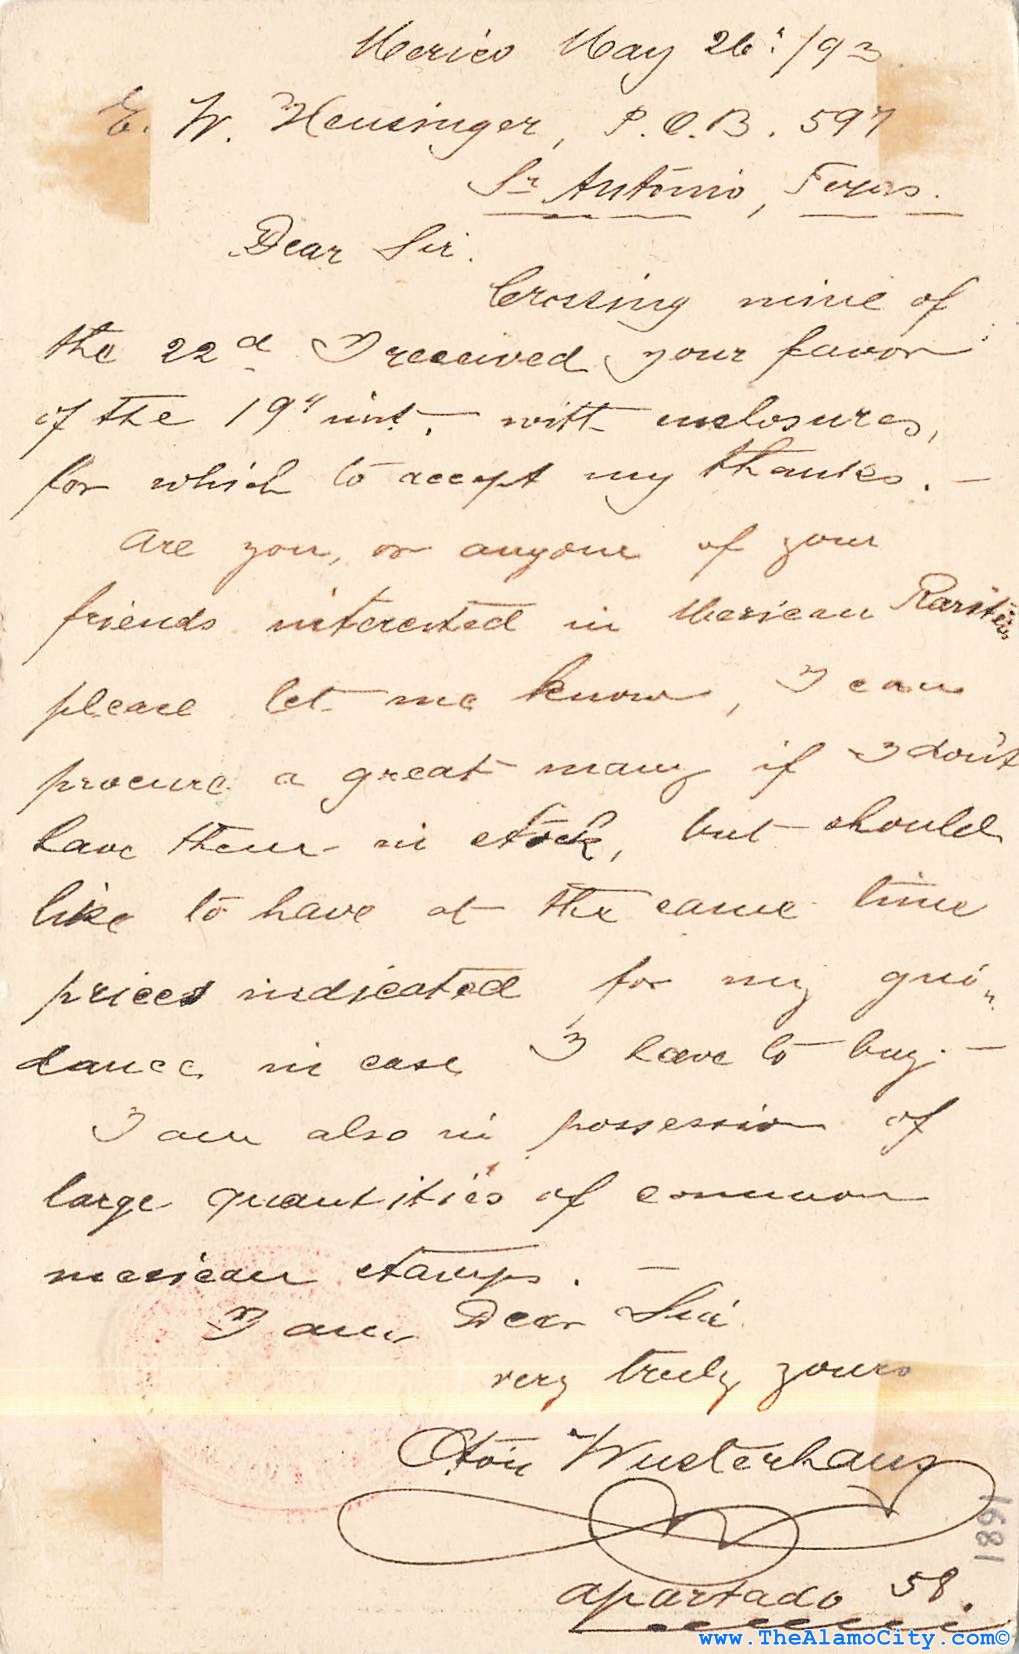 Mexico May 26th/93
E. W. Heusinger, P.O.B. 597
Sn Antonio, Texas.
Dear Sir.
Crossing mine of
the 22d I received your favor
of the 19th inst. - with enclosures,
for which to accept my thanks. -
Are you, or anyone of your
friends interested in Mexican Rarities
please let me know, I can
procure a great many if I don't
have them in stock, but should
like to have at the same time
prices indicated for my gui-
dance in case I have to buy. -
I am also in possession of
large quantities of common
mexican stamps. -
I am Dear Sir
very truly yours
Oton Wusterhaus
apartado 58.
1681
www.TheAlamoCity.com©